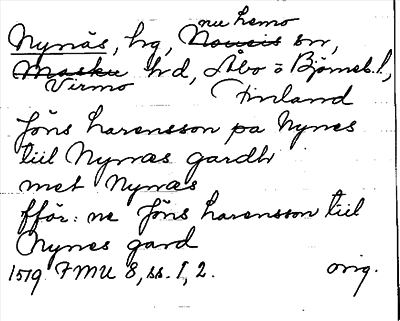 nu Lemo
Nynäs, hg, Nousis sn,
Masku hd, Åbo o Björneb. l,
Virmo Finland
Jöns Larensson pa Nynes
tiil Nynæs gardh
met Nynæs
fför: ne Jöns Larensson tiil
Nynes gard
1519 FMU 8, ss. 1, 2. orig.